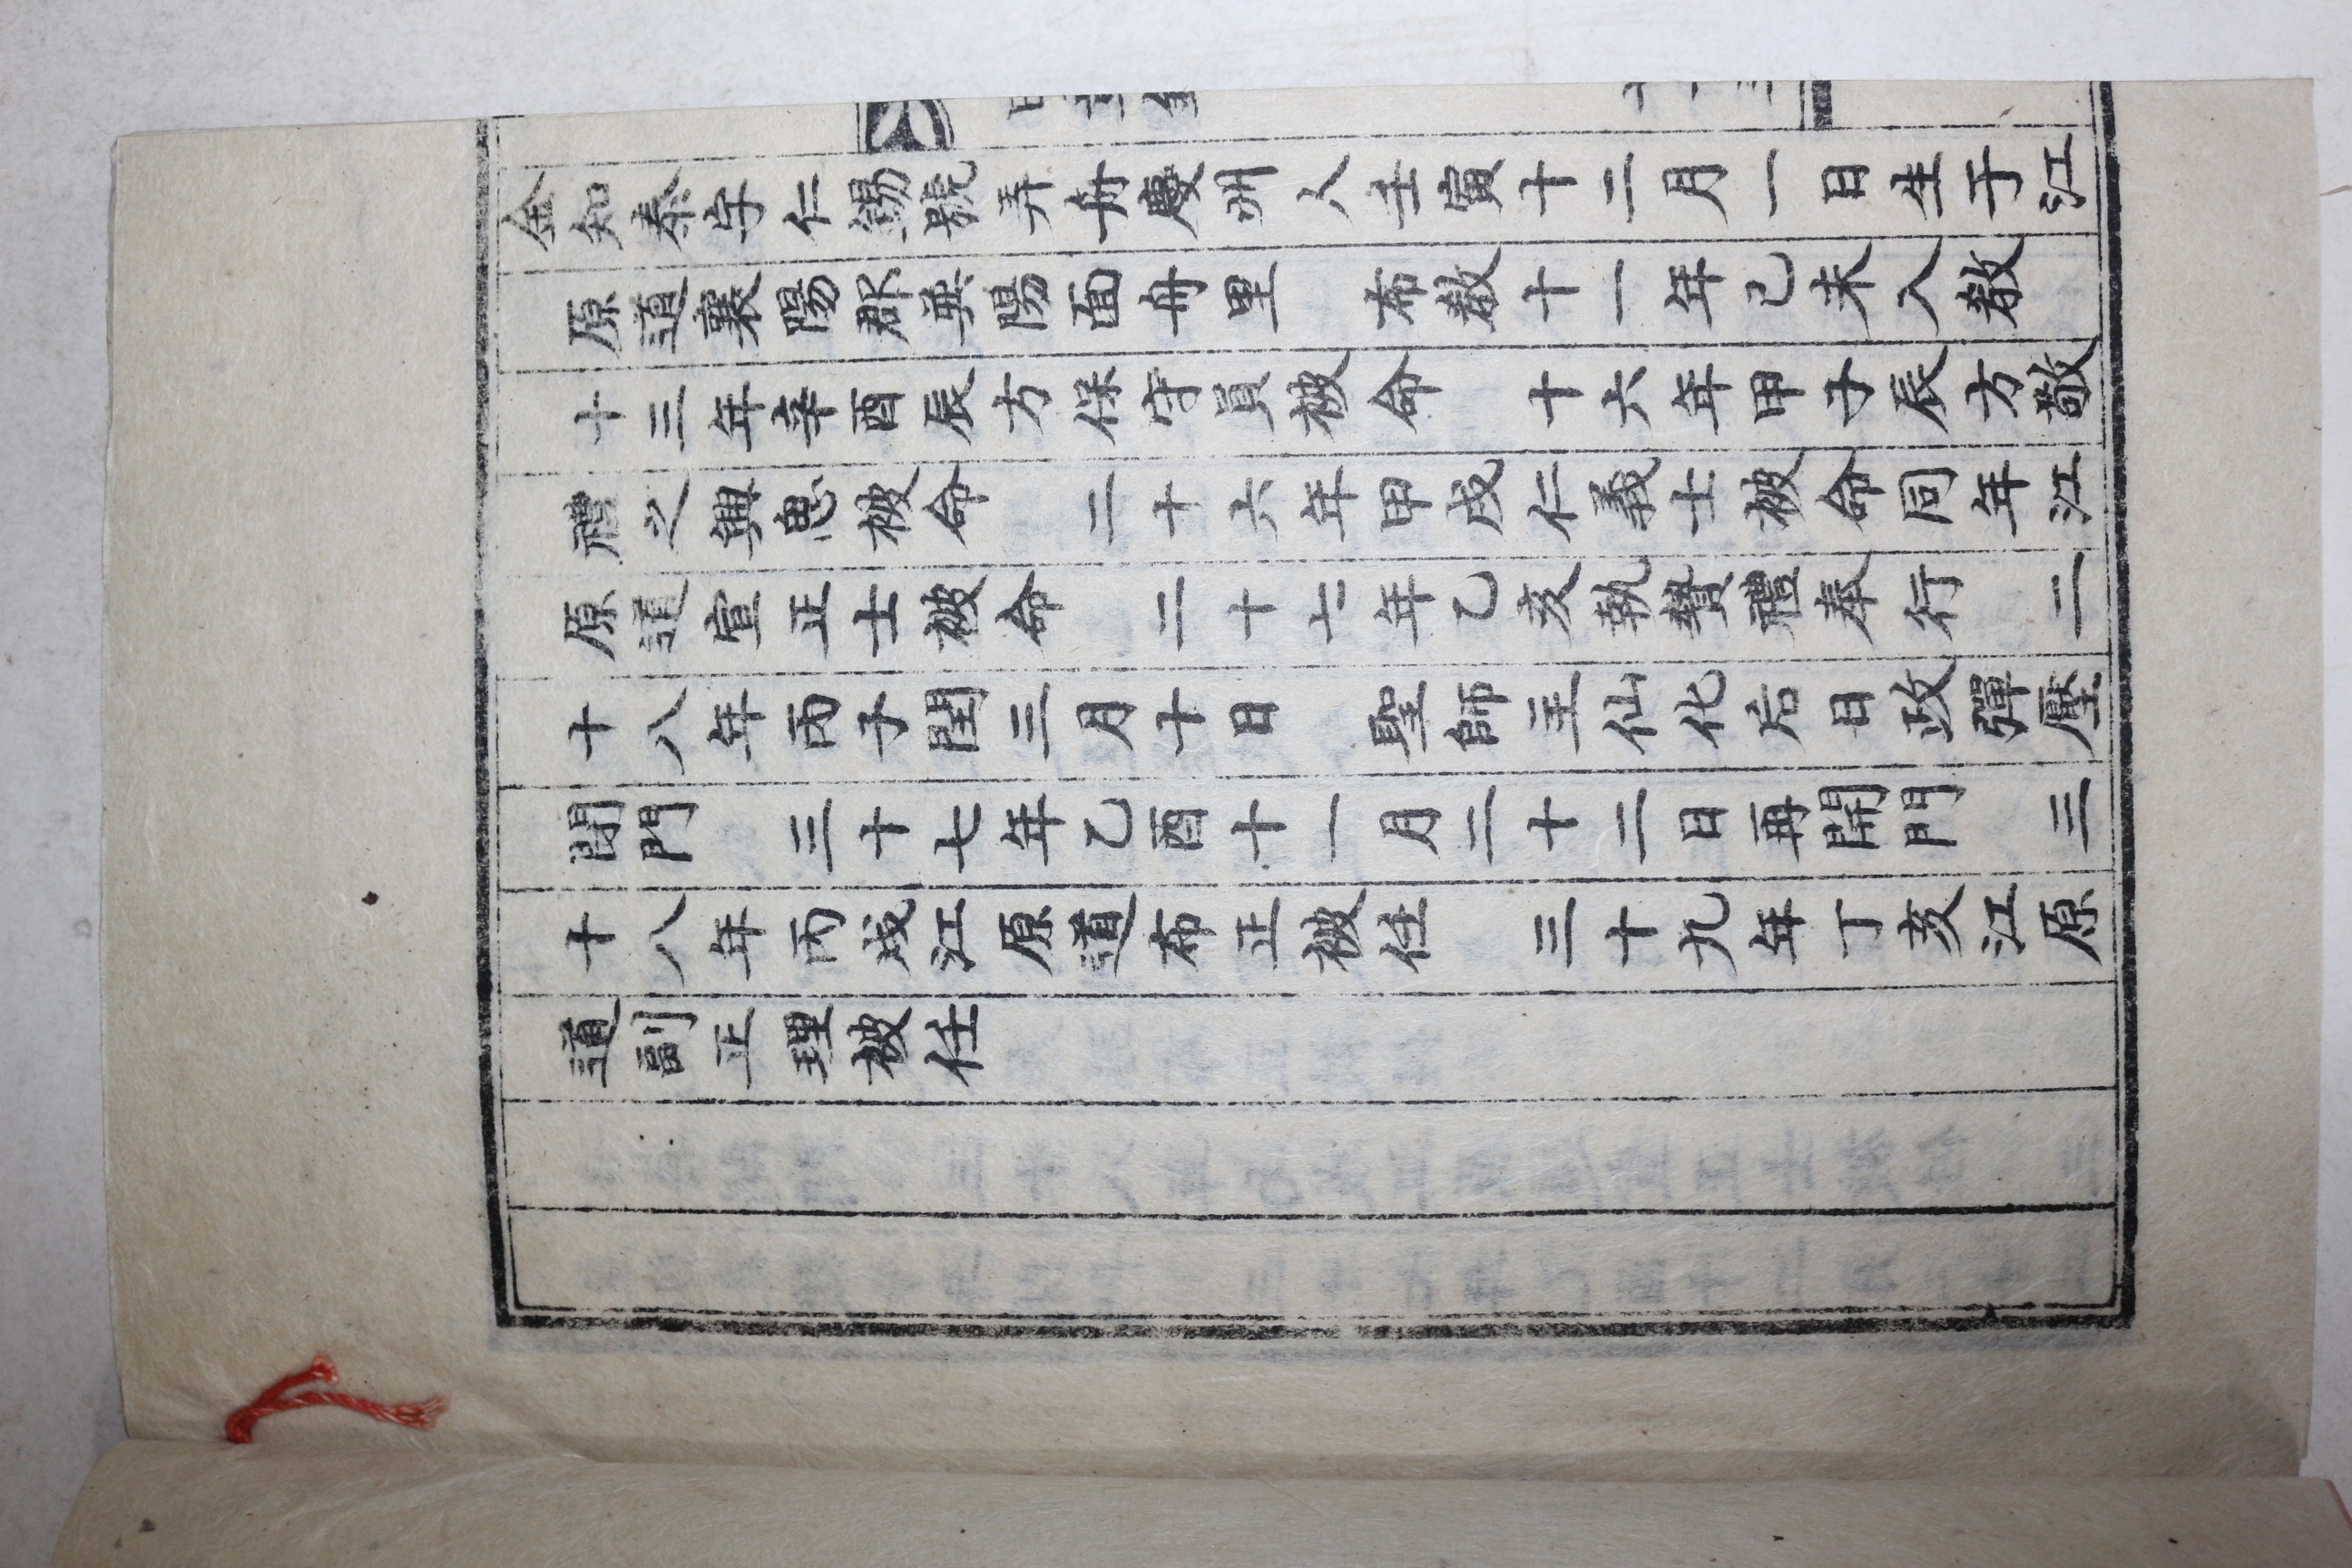 金知泰字仁錫號弄舟慶州人壬寅十二月一日生于江
原道襄陽郡巽陽面舟里 布教十一年己未入教
十三年辛酉辰方保守員被命 十六年甲子辰方敬
禮之興恩被命 二十六年甲戌仁義士被命同年江
原道宣正士被命 二十七年乙亥執贄禮奉行 二
十八年丙子閏三月十日 聖師主仙化后日政彈壓
閉門 三十七年乙酉十一月二十二日再開門 三
十八年丙戌江原道布正被任 三十九年丁亥江原
道副正理被任